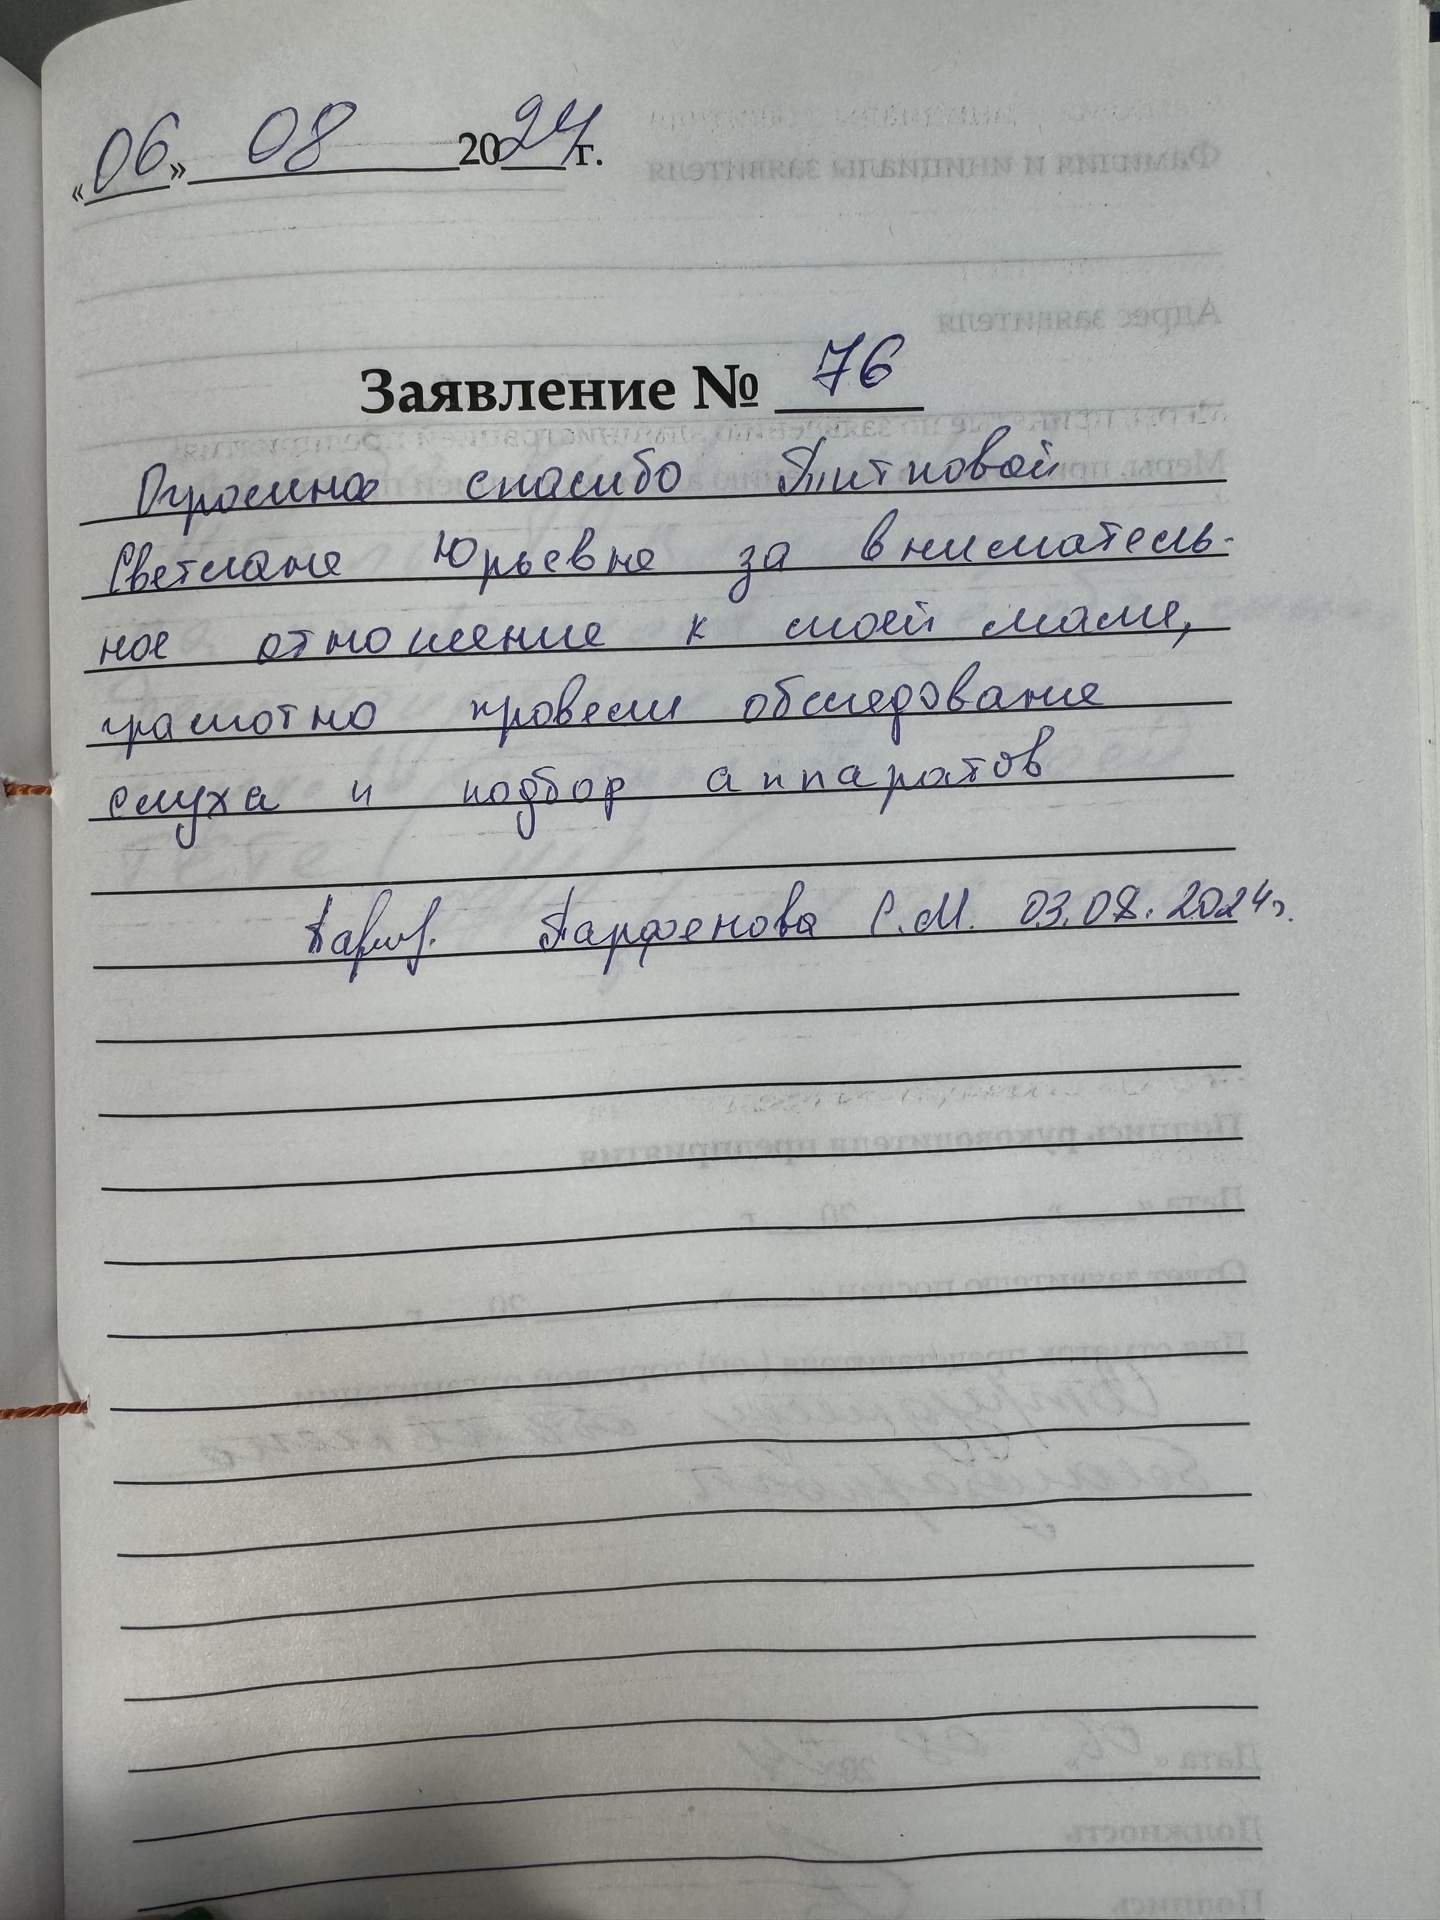 «06» 08 2024 г.
Заявление № 76
Огромное спасибо Питковой
Светлане Юрьевне за вниматель-
ное отношение к моей маме,
грамотно провели обследование
слуха и подбор аппаратов
Парфенова С.М. 03.08.2024г.